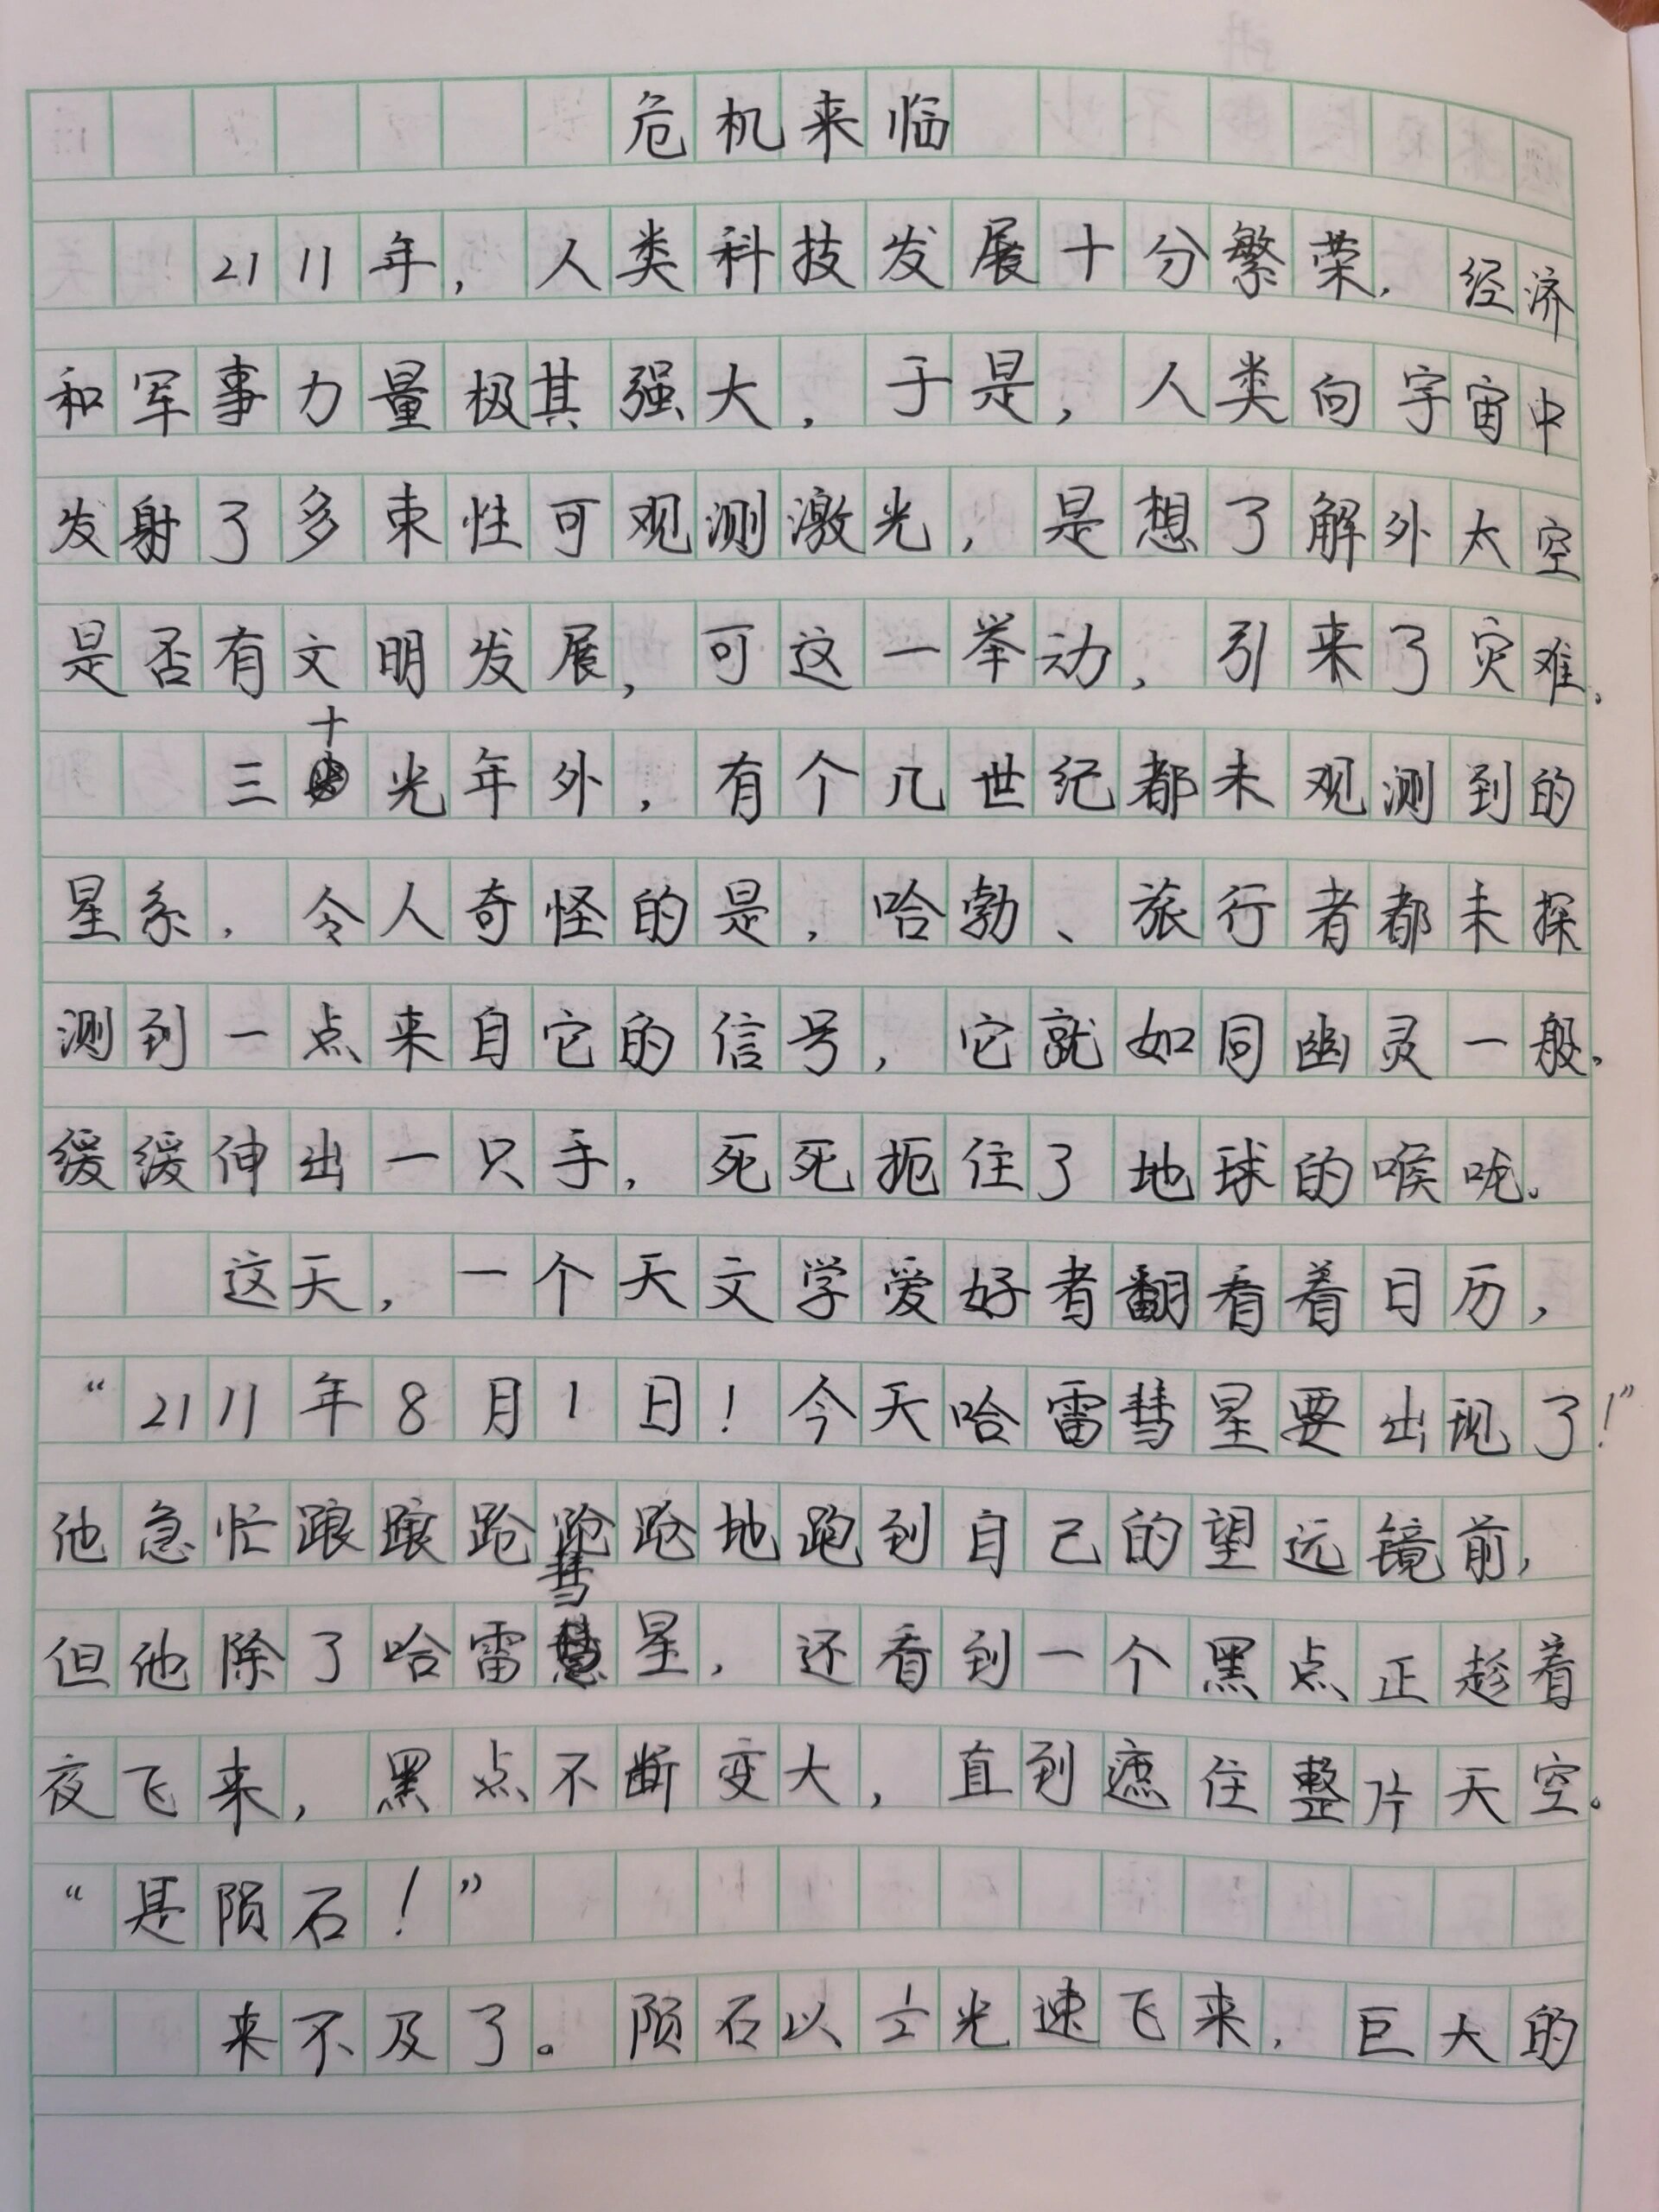 危机来临
2111年，人类科技发展十分繁荣，经济
和军事力量极其强大，于是，人类向宇宙中
发射了多束性可观测激光，是想了解外太空
是否有文明发展，可这一举动，引来了灾难。
三十光年外，有个几世纪都未观测到的
星系，令人奇怪的是，哈勃、旅行者都未探
测到一点来自它的信号，它就如同幽灵一般，
缓缓伸出一只手，死死扼住了地球的喉咙。
这天，一个天文学爱好者翻看着日历，
“2111年8月1日！今天哈雷彗星要出现了！”
他急忙踉踉跄跄跄地跑到自己的望远镜前，
但他除了哈雷彗星，还看到一个黑点正趁着
夜飞来，黑点不断变大，直到遮住整片天空。
“是陨石！”
来不及了。陨石以½光速飞来，巨大的